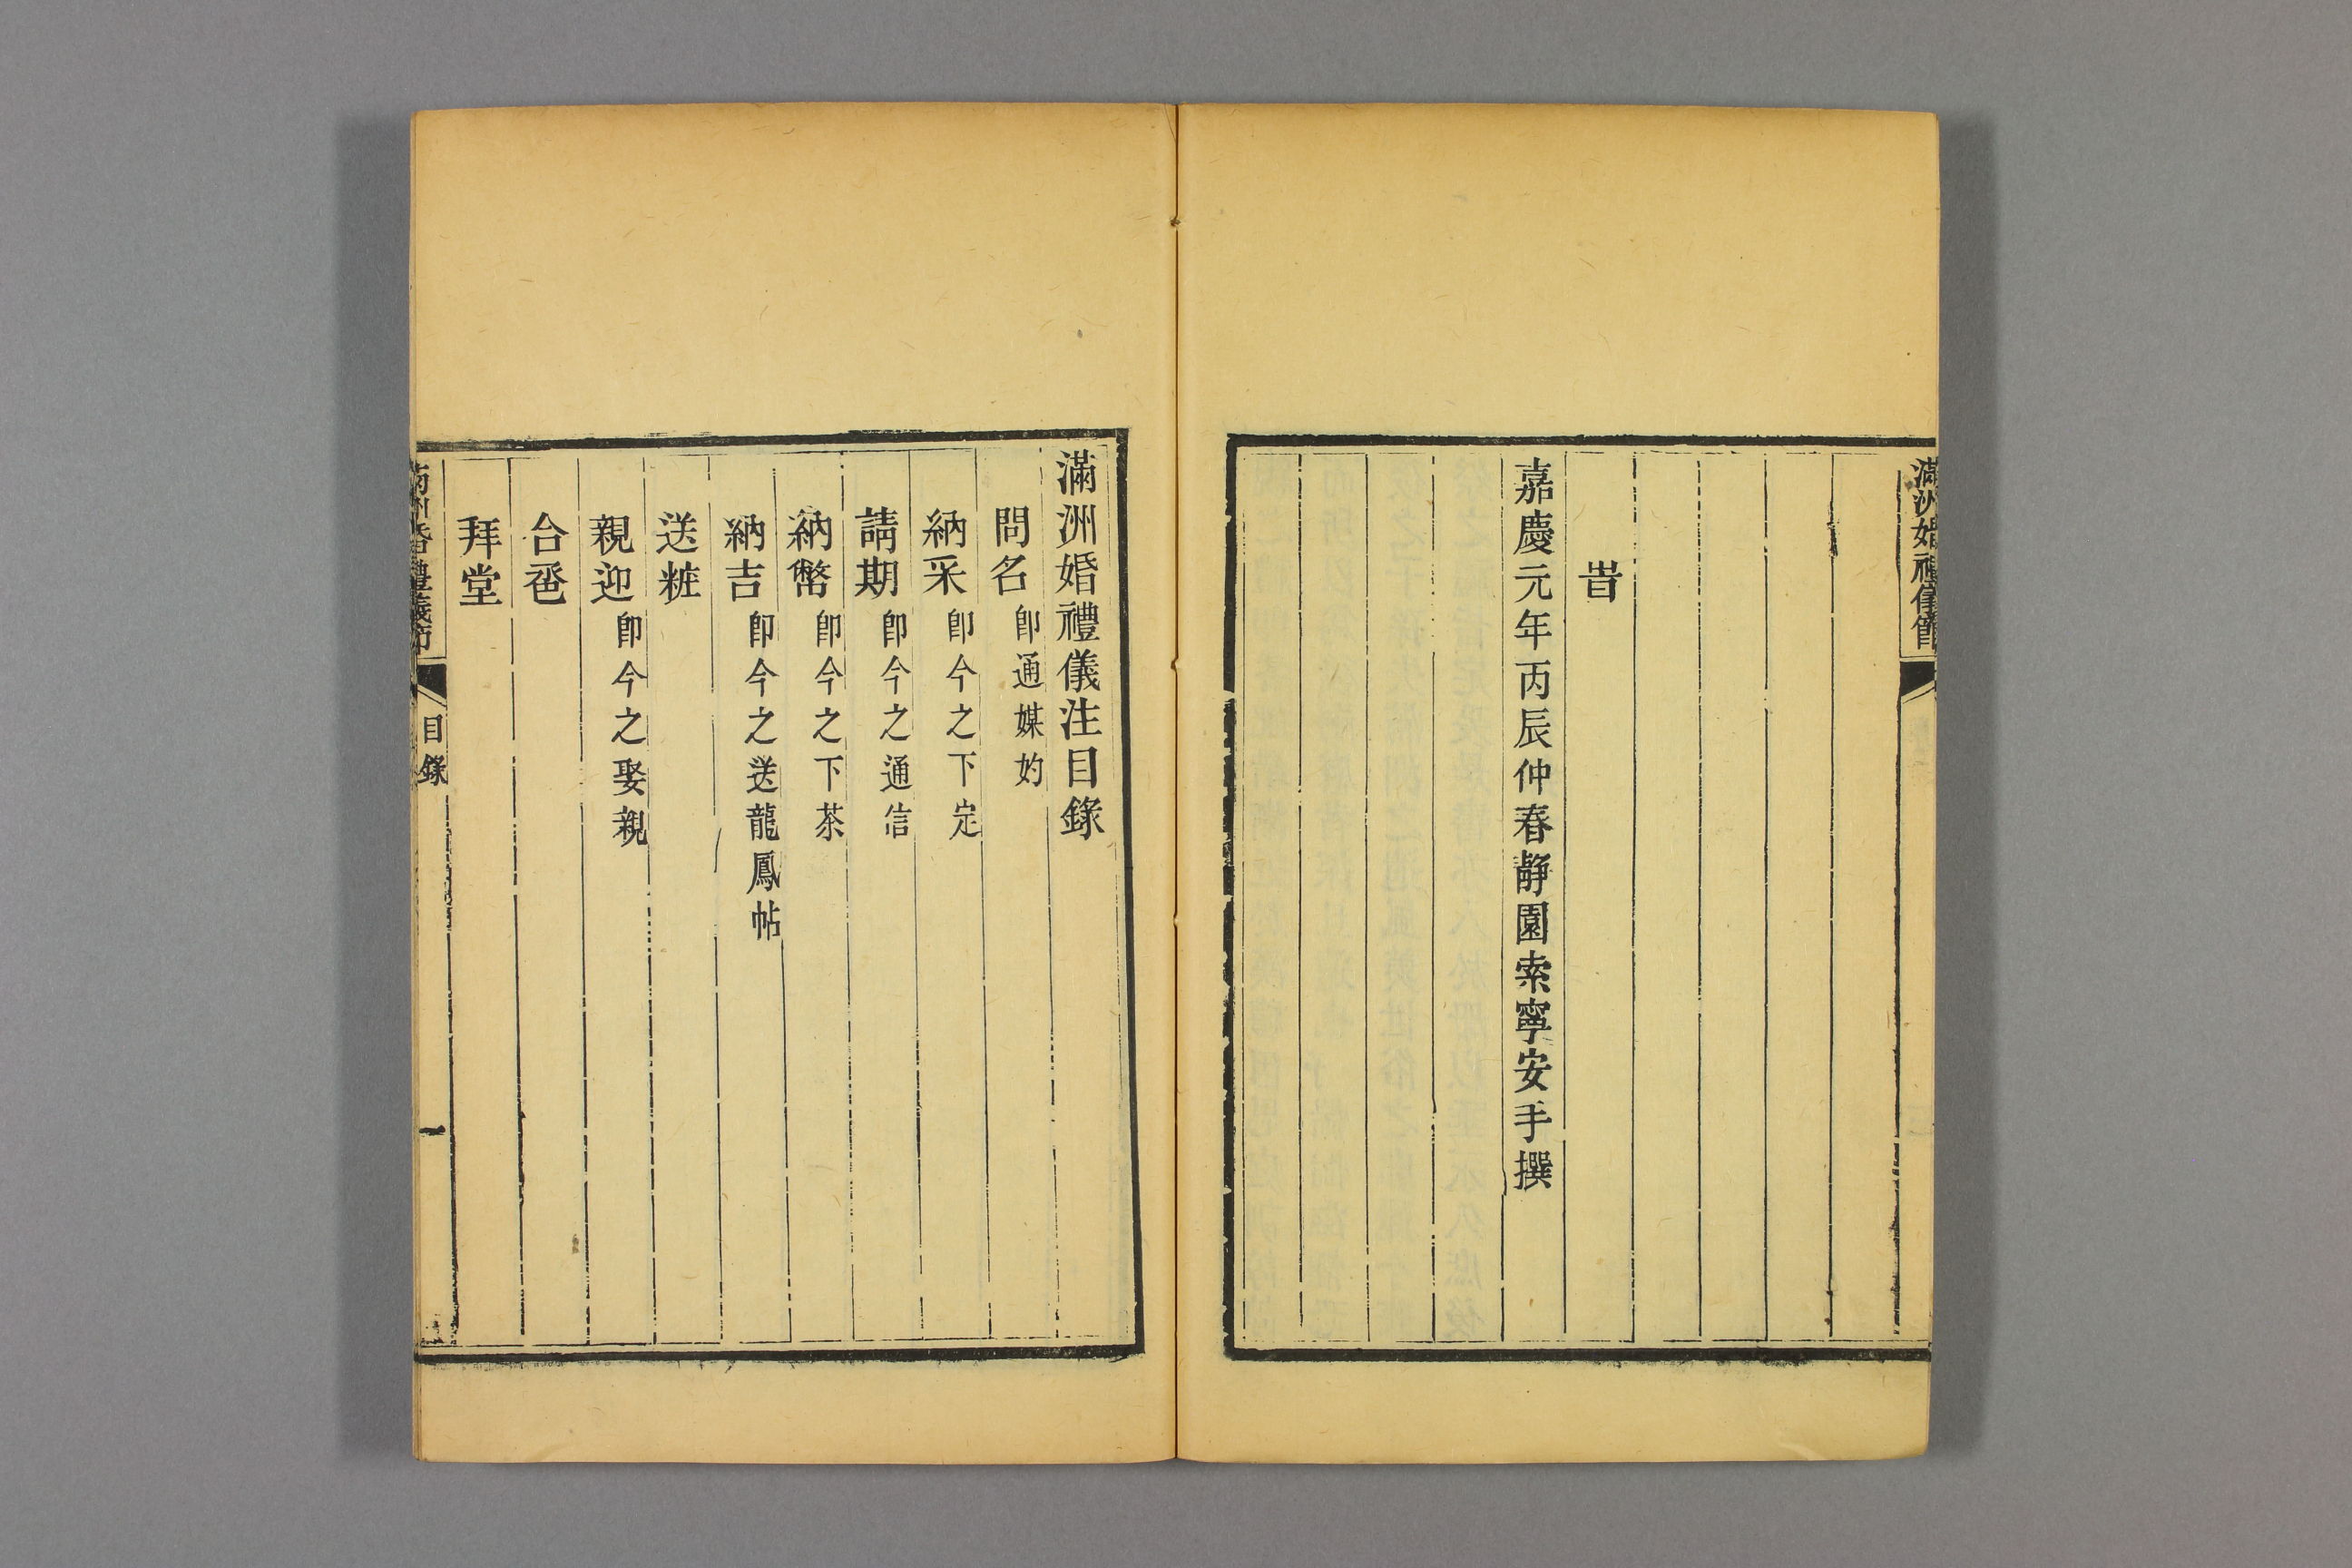 滿洲婚禮儀節
旹
嘉慶元年丙辰仲春靜園索寧安手撰
滿洲婚禮儀注目錄
問名 卽通媒妁
納采 卽今之下定
請期 卽今之通信
納幣 卽今之下茶
納吉 卽今之送龍鳳帖
送粧
親迎 卽今之娶親
合巹
拜堂
滿洲婚禮儀節 目錄 一